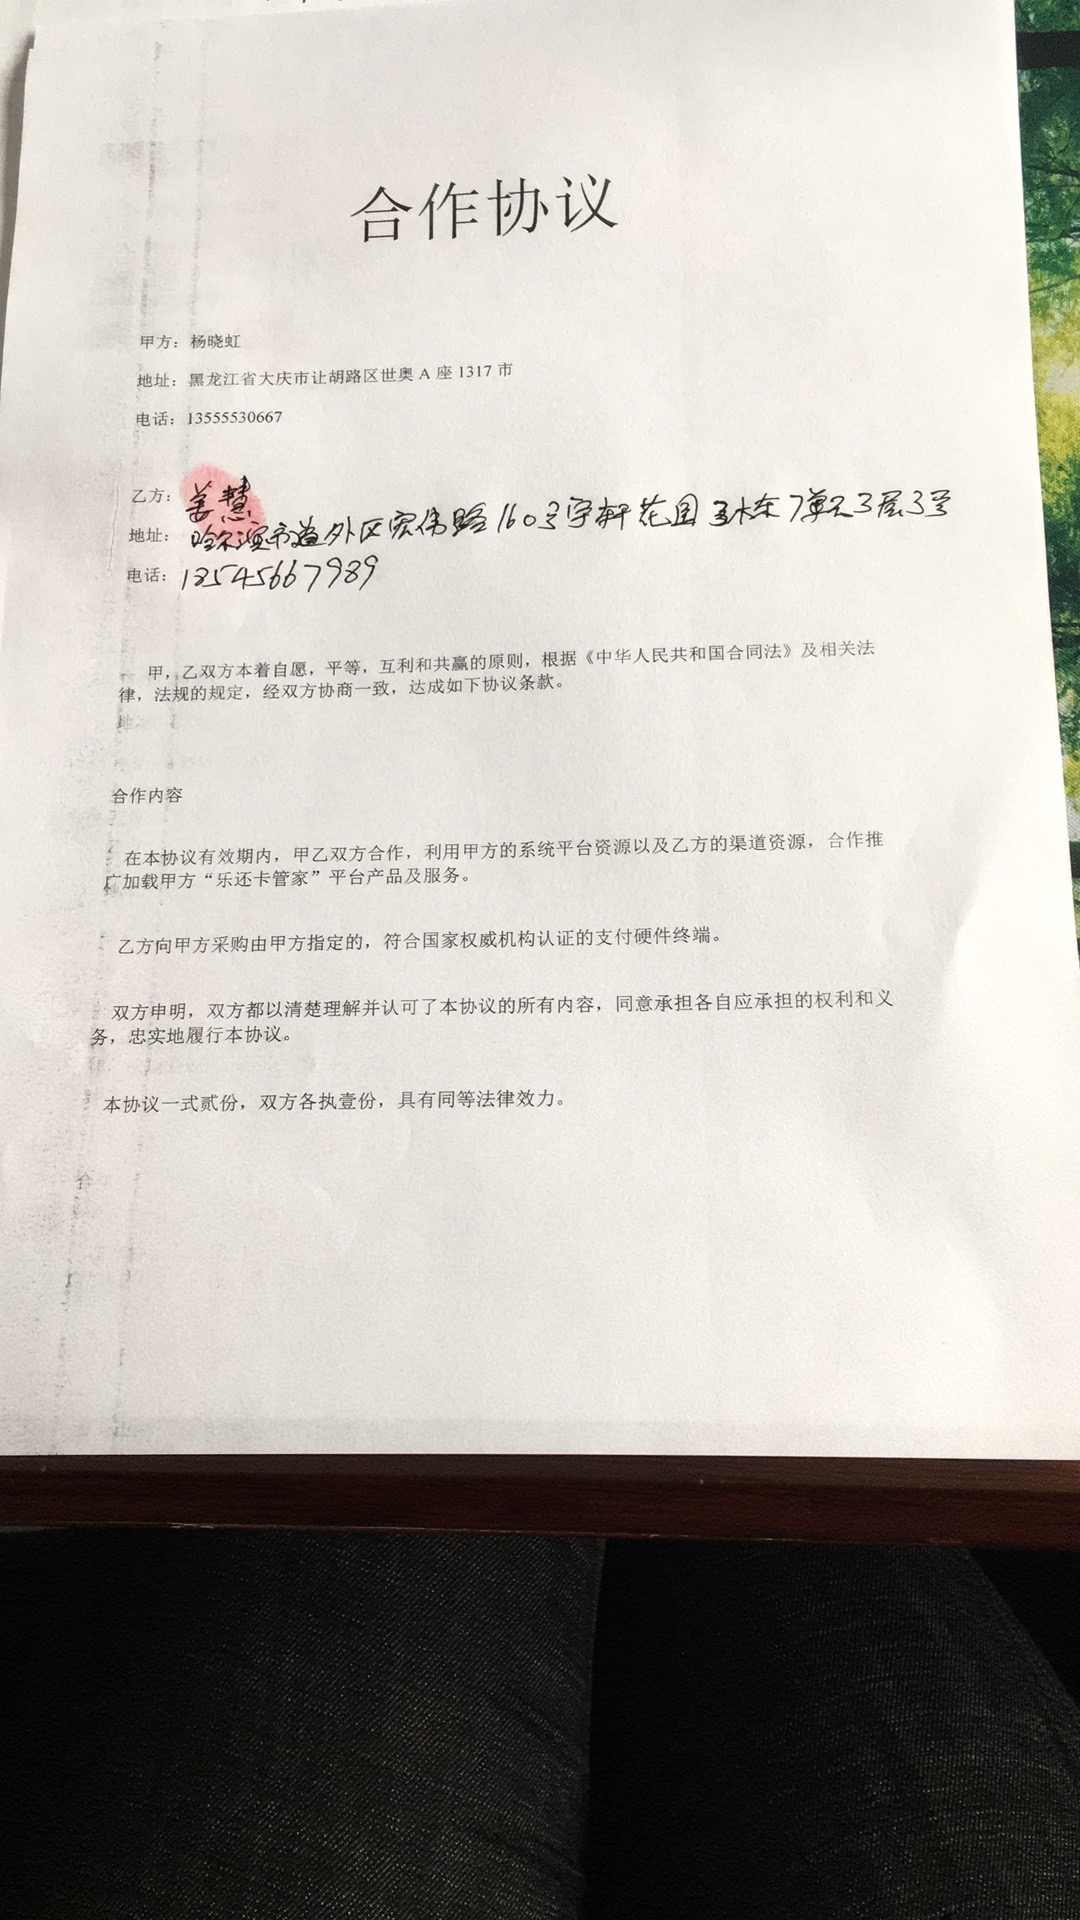 合作协议
甲方：杨晓虹
地址：黑龙江省大庆市让胡路区世奥 A 座 1317 市
电话：13555530667
乙方：姜慧
地址：哈尔滨市道外区宏伟路160号宇轩花园 7单元3层3号
电话：13545667989
甲，乙双方本着自愿，平等，互利和共赢的原则，根据《中华人民共和国合同法》及相关法
律，法规的规定，经双方协商一致，达成如下协议条款。
合作内容
在本协议有效期内，甲乙双方合作，利用甲方的系统平台资源以及乙方的渠道资源，合作推
广加载甲方“乐还卡管家”平台产品及服务。
乙方向甲方采购由甲方指定的，符合国家权威机构认证的支付硬件终端。
双方申明，双方都以清楚理解并认可了本协议的所有内容，同意承担各自应承担的权利和义
务，忠实地履行本协议。
本协议一式贰份，双方各执壹份，具有同等法律效力。